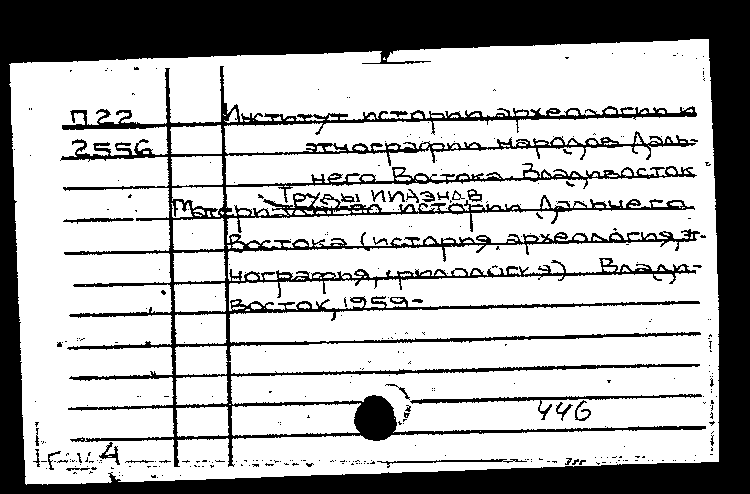 П22 Институт истории, археологии и
2556 этнографии народов Даль-
него Востока. Владивосток
Труды ИИАЭНДВ
Материалы по истории Дальнего
Востока (история, археология, эт-
нография, филология) Влади-
восток, 1959-
446
4